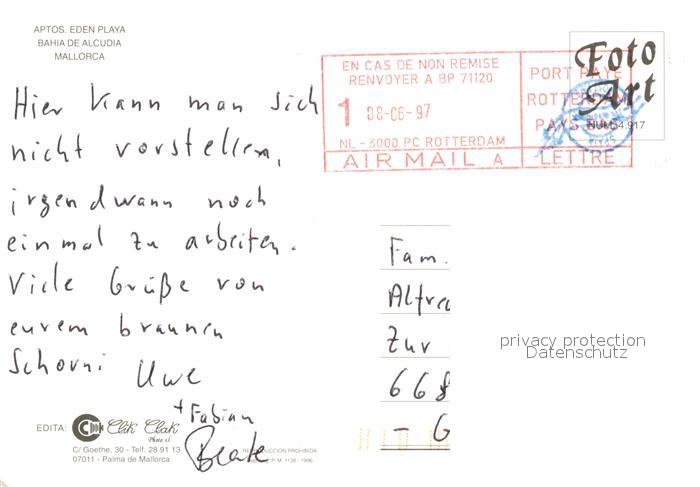 APTOS. EDEN PLAYA
BAHIA DE ALCUDIA
MALLORCA
Hier kann man sich
nicht vorstellen,
irgendwann noch
einmal zu arbeiten.
Viele Grüße von
eurem braunen
Schorni Uwe
+ Fabian
Beate
EDITA: Clik Clak
Photo s.l.
C/ Goethe, 30 - Telf. 28 91 13
07011 - Palma de Mallorca
REPRODUCCION PROHIBIDA
EN CAS DE NON REMISE
RENVOYER A BP 71120
1 08-06-97
NL - 3000 PC ROTTERDAM
AIR MAIL A
PORT PAYE
ROTTERDAM
PAYS
LETTRE
Foto
Art
NUM54.917
Fam.
Alfred
Zur
668
- G
privacy protection
Datenschutz